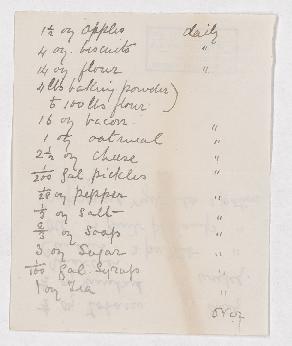 1½ oz apples daily
4 oz. biscuits "
14 oz flour "
4 lbs baking powder)
to 100 lbs flour
16 oz bacon "
1 oz oatmeal "
2½ oz cheese "
1/200 gal pickles "
1/20 oz pepper "
½ oz salt "
⅔ oz soap "
3 oz sugar "
1/100 gal syrup "
1 oz Tea "